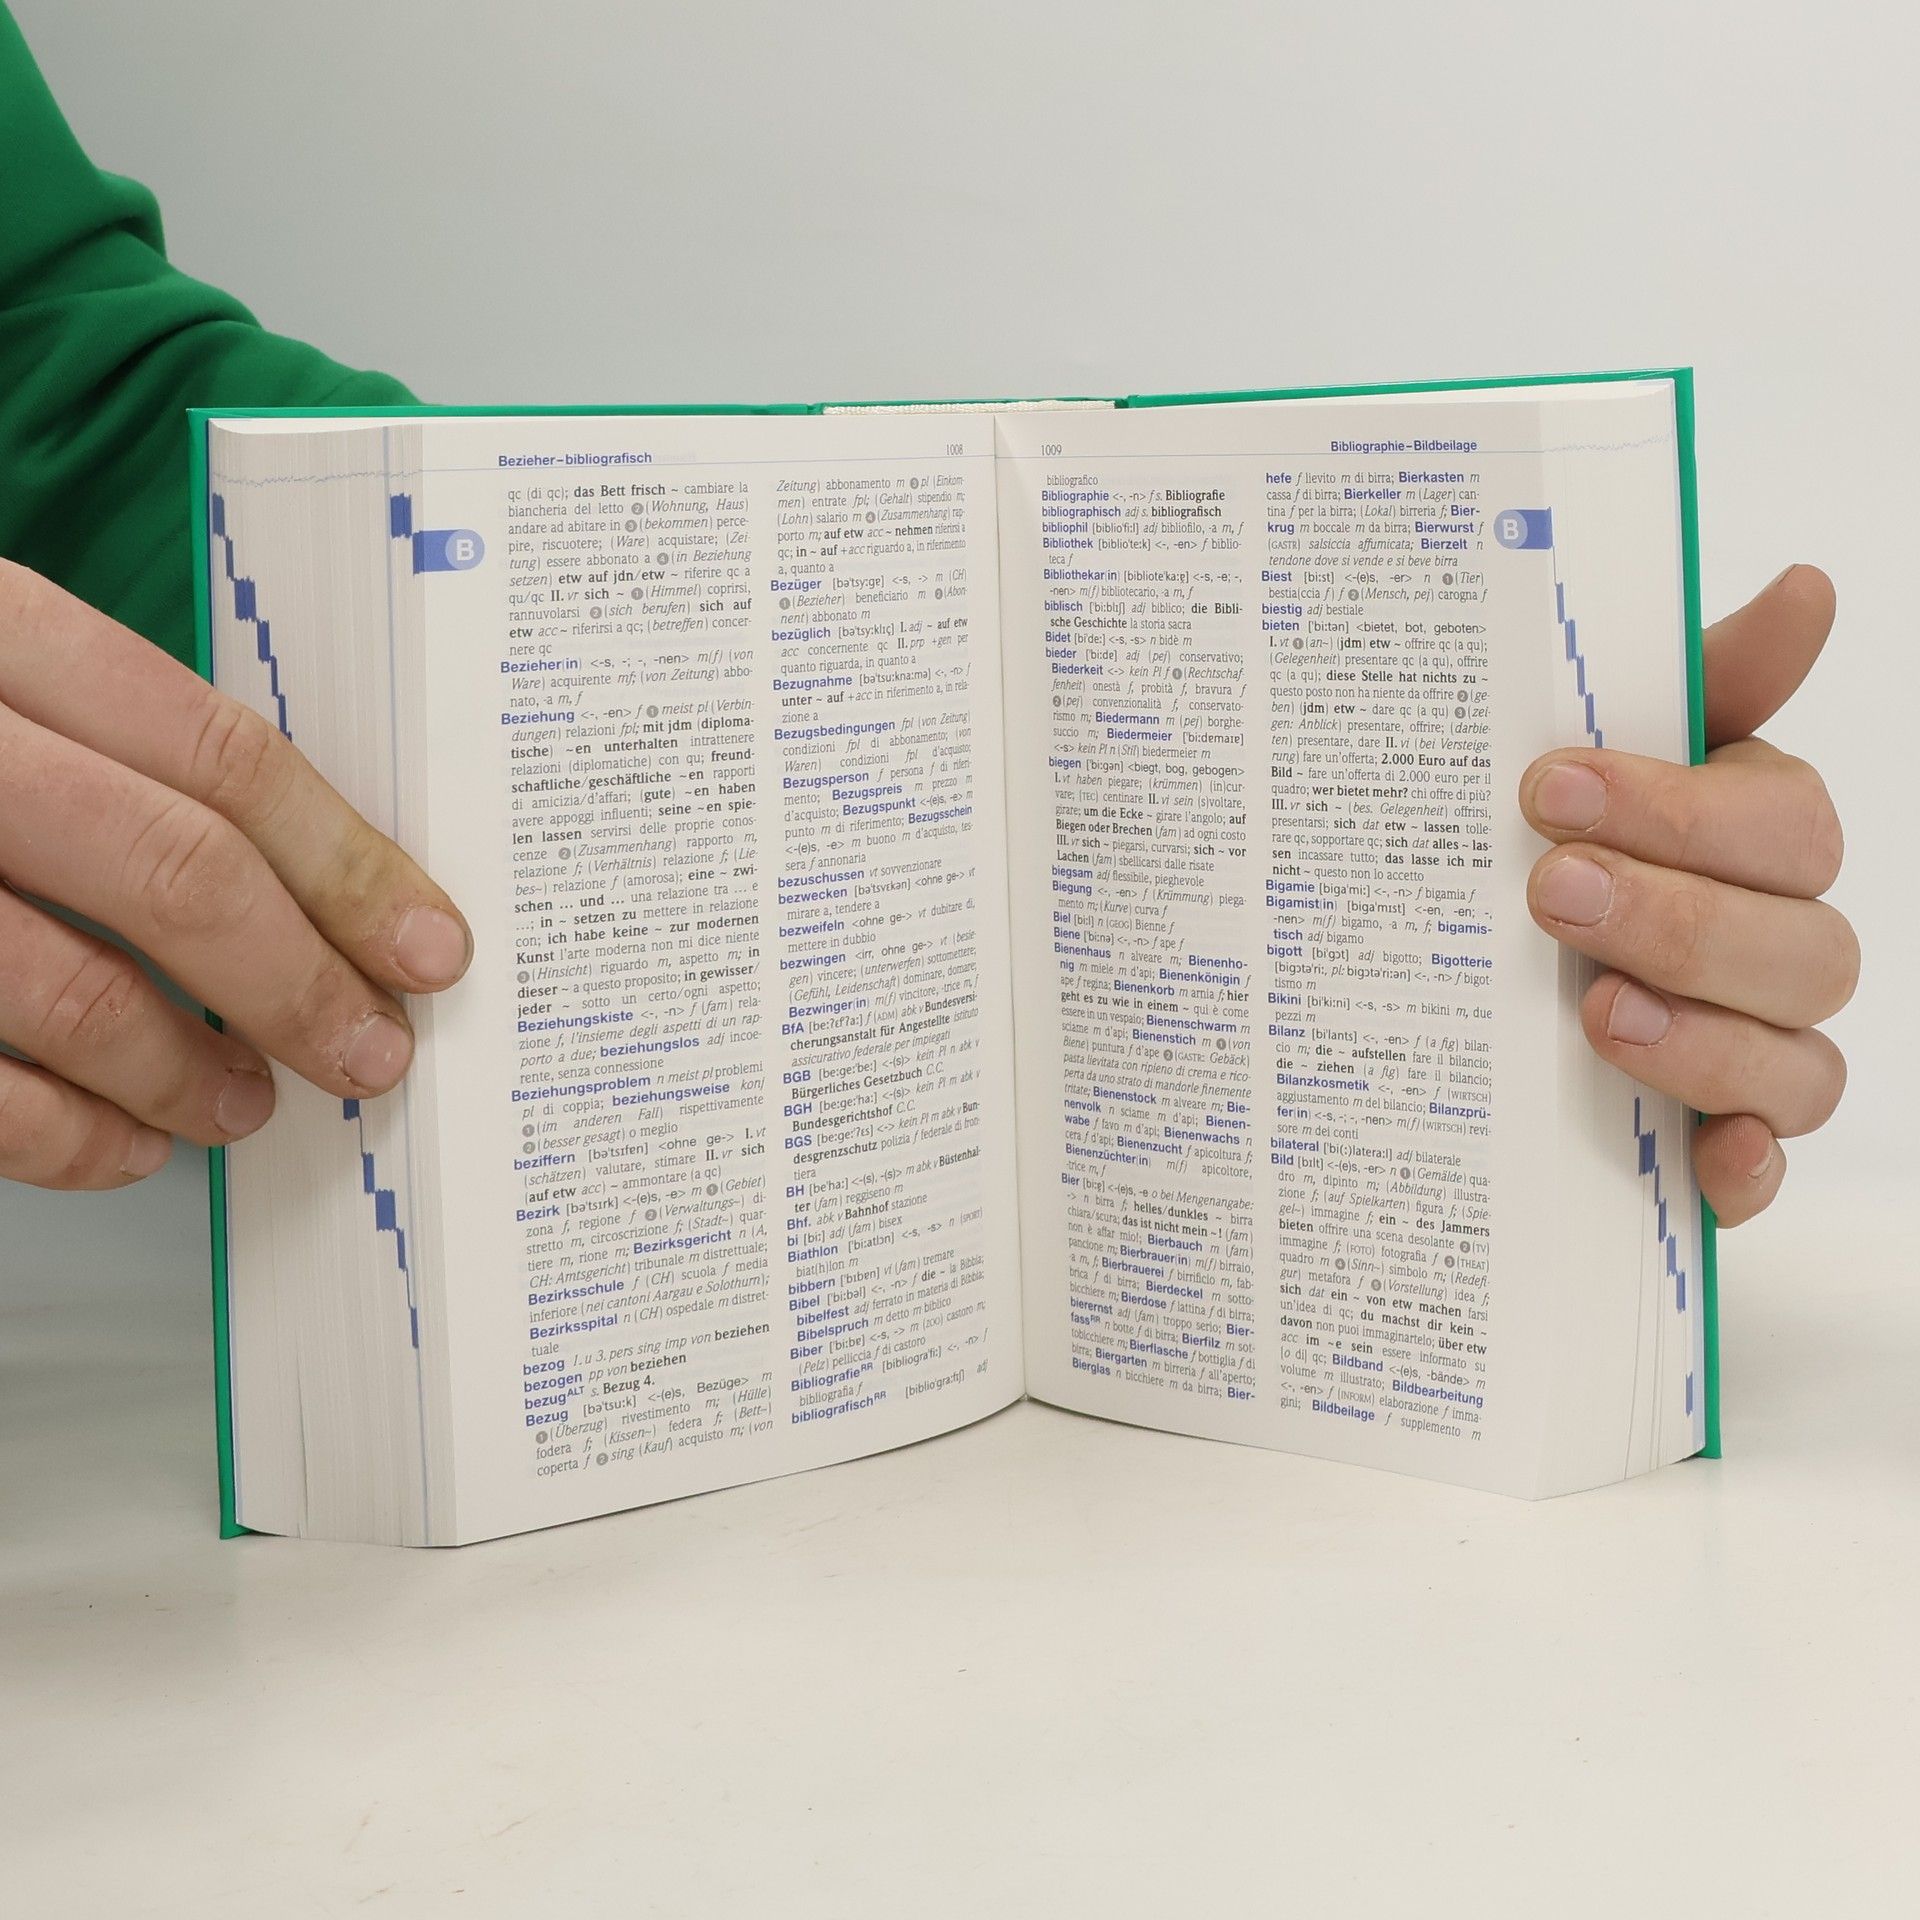 Bezieher–bibliografisch
1008
B
qc (di qc); das Bett frisch ~ cambiare la
biancheria del letto ❷ (Wohnung, Haus)
andare ad abitare in ❸ (bekommen) perce-
pire, riscuotere; (Ware) acquistare; (Zei-
tung) essere abbonato a ❹ (in Beziehung
setzen) etw auf jdn/etw ~ riferire qc a
qu/qc II. vr sich ~ ❶ (Himmel) coprirsi,
rannuvolarsi ❷ (sich berufen) sich auf
etw acc ~ riferirsi a qc; (betreffen) concer-
nere qc
Bezieher(in) <-s, -; -, -nen> m(f) (von
Ware) acquirente mf; (von Zeitung) abbo-
nato, -a m, f
Beziehung <-, -en> f ❶ meist pl (Verbin-
dungen) relazioni fpl; mit jdm (diploma-
tische) ~en unterhalten intrattenere
relazioni (diplomatiche) con qu; freund-
schaftliche/geschäftliche ~en rapporti
di amicizia/d'affari; (gute) ~en haben
avere appoggi influenti; seine ~en spie-
len lassen servirsi delle proprie conos-
cenze ❷ (Zusammenhang) rapporto m,
relazione f; (Verhältnis) relazione f; (Lie-
bes~) relazione f (amorosa); eine ~ zwi-
schen ... und ... una relazione tra ... e
...; in ~ setzen zu mettere in relazione
con; ich habe keine ~ zur modernen
Kunst l'arte moderna non mi dice niente
❸ (Hinsicht) riguardo m, aspetto m; in
dieser ~ a questo proposito; in gewisser/
jeder ~ sotto un certo/ogni aspetto;
Beziehungskiste <-, -n> f (fam) rela-
zione f, l'insieme degli aspetti di un rap-
porto a due; beziehungslos adj incoe-
rente, senza connessione
Beziehungsproblem n meist pl problemi
pl di coppia; beziehungsweise konj
❶ (im anderen Fall) rispettivamente
❷ (besser gesagt) o meglio
beziffern [bə'tsɪfen] <ohne ge-> I. vt
(schätzen) valutare, stimare II. vr sich
(auf etw acc) ~ ammontare (a qc)
Bezirk [bə'tsɪrk] <-(e)s, -e> m ❶ (Gebiet)
zona f, regione f ❷ (Verwaltungs~) di-
stretto m, circoscrizione f; (Stadt~) quar-
tiere m, rione m; Bezirksgericht n (A,
CH: Amtsgericht) tribunale m distrettuale;
Bezirksschule f (CH) scuola f media
inferiore (nei cantoni Aargau e Solothurn);
Bezirksspital n (CH) ospedale m distret-
tuale
bezog 1. u 3. pers sing imp von beziehen
bezogen pp von beziehen
bezugALT s. Bezug 4.
Bezug [bə'tsu:k] <-(e)s, Bezüge> m
❶ (Überzug) rivestimento m; (Hülle)
fodera f; (Kissen~) federa f; (Bett~)
coperta f ❷ sing (Kauf) acquisto m; (von
Zeitung) abbonamento m ❸ pl (Einkom-
men) entrate fpl; (Gehalt) stipendio m;
(Lohn) salario m ❹ (Zusammenhang) rap-
porto m; auf etw acc ~ nehmen riferirsi a
qc; in ~ auf +acc riguardo a, in riferimento
a, quanto a
Bezüger [bə'tsy:gɐ] <-s, -> m (CH)
❶ (Bezieher) beneficiario m ❷ (Abon-
nent) abbonato m
bezüglich [bə'tsy:klɪç] I. adj ~ auf etw
acc concernente qc II. prp +gen per
quanto riguarda, in quanto a
Bezugnahme [bə'tsu:kna:mə] <-, -n> f
unter ~ auf +acc in riferimento a, in rela-
zione a
Bezugsbedingungen fpl (von Zeitung)
condizioni fpl di abbonamento; (von
Waren) condizioni fpl d'acquisto;
Bezugsperson f persona f di riferi-
mento; Bezugspreis m prezzo m
d'acquisto; Bezugspunkt <-(e)s, -e> m
punto m di riferimento; Bezugsschein
<-(e)s, -e> m buono m d'acquisto, tes-
sera f annonaria
bezuschussen vt sovvenzionare
bezwecken [bə'tsvɛkən] <ohne ge-> vt
mirare a, tendere a
bezweifeln <ohne ge-> vt dubitare di,
mettere in dubbio
bezwingen <irr, ohne ge-> vt (besie-
gen) vincere; (unterwerfen) sottomettere;
(Gefühl, Leidenschaft) dominare, domare;
Bezwinger(in) m(f) vincitore, -trice m, f
BfA [be:ʔɛf'ʔa:] f (ADM) abk v Bundesversi-
cherungsanstalt für Angestellte istituto
assicurativo federale per impiegati
BGB [be:ge:'be:] <-(s)> kein Pl n abk v
Bürgerliches Gesetzbuch C.C.
BGH [be:ge:'ha:] <-(s)> kein Pl m abk v
Bundesgerichtshof C.C.
BGS [be:ge:'ʔɛs] <-> kein Pl m abk v Bun-
desgrenzschutz polizia f federale di fron-
tiera
BH [be'ha:] <-(s), -(s)> m abk v Büstenhal-
ter (fam) reggiseno m
Bhf. abk v Bahnhof stazione
bi [bi:] adj (fam) bisex
Biathlon ['bi:atlɔn] <-s, -s> n (SPORT)
biat(h)lon m
bibbern ['bɪbɐn] vi (fam) tremare
Bibel ['bi:bəl] <-, -n> f die ~ la Bibbia;
bibelfest adj ferrato in materia di Bibbia;
Bibelspruch m detto m biblico
Biber ['bi:bɐ] <-s, -> m (ZOO) castoro m;
(Pelz) pelliccia f di castoro
BibliografieRR [bibliogra'fi:] <-, -n> f
bibliografia f
bibliografischRR [biblio'gra:fɪʃ] adj
1009
Bibliographie–Bildbeilage
B
bibliografico
Bibliographie <-, -n> f s. Bibliografie
bibliographisch adj s. bibliografisch
bibliophil [biblio'fi:l] adj bibliofilo, -a m, f
Bibliothek [biblio'te:k] <-, -en> f biblio-
teca f
Bibliothekar(in) [bibliote'ka:ɐ] <-s, -e; -,
-nen> m(f) bibliotecario, -a m, f
biblisch ['bi:blɪʃ] adj biblico; die Bibli-
sche Geschichte la storia sacra
Bidet [bi'de:] <-s, -s> n bidè m
bieder ['bi:dɐ] adj (pej) conservativo;
Biederkeit <-> kein Pl f ❶ (Rechtschaf-
fenheit) onestà f, probità f, bravura f
❷ (pej) convenzionalità f, conservato-
rismo m; Biedermann m (pej) borghe-
succio m; Biedermeier ['bi:dɐmaɪɐ]
<-s> kein Pl n (Stil) biedermeier m
biegen ['bi:gən] <biegt, bog, gebogen>
I. vt haben piegare; (krümmen) (in)cur-
vare; (TEC) centinare II. vi sein (s)voltare,
girare; um die Ecke ~ girare l'angolo; auf
Biegen oder Brechen (fam) ad ogni costo
III. vr sich ~ piegarsi, curvarsi; sich ~ vor
Lachen (fam) sbellicarsi dalle risate
biegsam adj flessibile, pieghevole
Biegung <-, -en> f (Krümmung) piega-
mento m; (Kurve) curva f
Biel [bi:l] n (GEOG) Bienne f
Biene ['bi:nə] <-, -n> f ape f
Bienenhaus n alveare m; Bienenho-
nig m miele m d'api; Bienenkönigin f
ape f regina; Bienenkorb m arnia f; hier
geht es zu wie in einem ~ qui è come
essere in un vespaio; Bienenschwarm m
sciame m d'api; Bienenstich m ❶ (von
Biene) puntura f d'ape ❷ (GASTR: Gebäck)
pasta lievitata con ripieno di crema e rico-
perta da uno strato di mandorle finemente
tritate; Bienenstock m alveare m; Bie-
nenvolk n sciame m d'api; Bienen-
wabe f favo m d'api; Bienenwachs n
cera f d'api; Bienenzucht f apicoltura f;
Bienenzüchter(in) m(f) apicoltore,
-trice m, f
Bier [bi:ɐ] <-(e)s, -e o bei Mengenangabe:
-> n birra f; helles/dunkles ~ birra
chiara/scura; das ist nicht mein ~! (fam)
non è affar mio!; Bierbauch m (fam)
pancione m; Bierbrauer(in) m(f) birraio,
-a m, f; Bierbrauerei f birrificio m, fab-
brica f di birra; Bierdeckel m sotto-
bicchiere m; Bierdose f lattina f di birra;
bierernst adj (fam) troppo serio; Bier-
fassRR n botte f di birra; Bierfilz m sot-
tobicchiere m; Bierflasche f bottiglia f di
birra; Biergarten m birreria f all'aperto;
Bierglas n bicchiere m da birra; Bier-
hefe f lievito m di birra; Bierkasten m
cassa f di birra; Bierkeller m (Lager) can-
tina f per la birra; (Lokal) birreria f; Bier-
krug m boccale m da birra; Bierwurst f
(GASTR) salsiccia affumicata; Bierzelt n
tendone dove si vende e si beve birra
Biest [bi:st] <-(e)s, -er> n ❶ (Tier)
bestia(ccia f) f ❷ (Mensch, pej) carogna f
biestig adj bestiale
bieten ['bi:tən] <bietet, bot, geboten>
I. vt ❶ (an~) (jdm) etw ~ offrire qc (a qu);
(Gelegenheit) presentare qc (a qu), offrire
qc (a qu); diese Stelle hat nichts zu ~
questo posto non ha niente da offrire ❷ (ge-
ben) (jdm) etw ~ dare qc (a qu) ❸ (zei-
gen: Anblick) presentare, offrire; (darbie-
ten) presentare, dare II. vi (bei Versteige-
rung) fare un'offerta; 2.000 Euro auf das
Bild ~ fare un'offerta di 2.000 euro per il
quadro; wer bietet mehr? chi offre di più?
III. vr sich ~ (bes. Gelegenheit) offrirsi,
presentarsi; sich dat etw ~ lassen tolle-
rare qc, sopportare qc; sich dat alles ~ las-
sen incassare tutto; das lasse ich mir
nicht ~ questo non lo accetto
Bigamie [biga'mi:] <-, -n> f bigamia f
Bigamist(in) [biga'mɪst] <-en, -en; -,
-nen> m(f) bigamo, -a m, f; bigamis-
tisch adj bigamo
bigott [bi'gɔt] adj bigotto; Bigotterie
[bigɔtə'ri:, pl: bigɔtə'ri:ən] <-, -n> f bigot-
tismo m
Bikini [bi'ki:ni] <-s, -s> m bikini m, due
pezzi m
Bilanz [bi'lants] <-, -en> f (a fig) bilan-
cio m; die ~ aufstellen fare il bilancio;
die ~ ziehen (a fig) fare il bilancio;
Bilanzkosmetik <-, -en> f (WIRTSCH)
aggiustamento m del bilancio; Bilanzprü-
fer(in) <-s, -; -, -nen> m(f) (WIRTSCH) revi-
sore m dei conti
bilateral ['bi(:)latera:l] adj bilaterale
Bild [bɪlt] <-(e)s, -er> n ❶ (Gemälde) qua-
dro m, dipinto m; (Abbildung) illustra-
zione f; (auf Spielkarten) figura f; (Spie-
gel~) immagine f; ein ~ des Jammers
bieten offrire una scena desolante ❷ (TV)
immagine f; (FOTO) fotografia f ❸ (THEAT)
quadro m ❹ (Sinn~) simbolo m; (Redefi-
gur) metafora f ❺ (Vorstellung) idea f;
sich dat ein ~ von etw machen farsi
un'idea di qc; du machst dir kein ~
davon non puoi immaginartelo; über etw
acc im ~e sein essere informato su
[o di] qc; Bildband <-(e)s, -bände> m
volume m illustrato; Bildbearbeitung
<-, -en> f (INFORM) elaborazione f imma-
gini; Bildbeilage f supplemento m